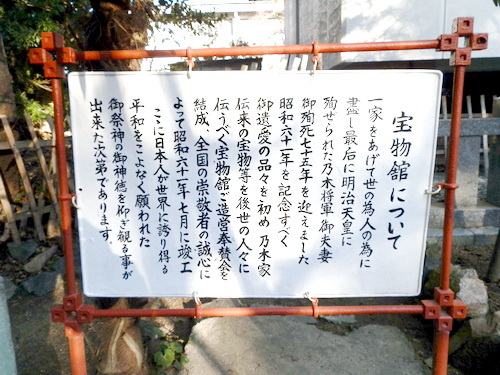 宝物館について
一家をあげて世の為人の為に
盡し最后に明治天皇に
殉ぜられた乃木将軍御夫妻
御殉死七十五年を迎えました
昭和六十一年を記念すべく
御遺愛の品々を初め乃木家
伝来の宝物等を後世の人々に
伝うべく宝物館ご造営奉賛会を
結成、全国の崇敬者の誠心に
よって昭和六十一年七月に竣工
ここに日本人が世界に誇り得る
平和をこよなく願われた
御祭神の御神徳を仰ぎ観る事が
出来た次第であります。